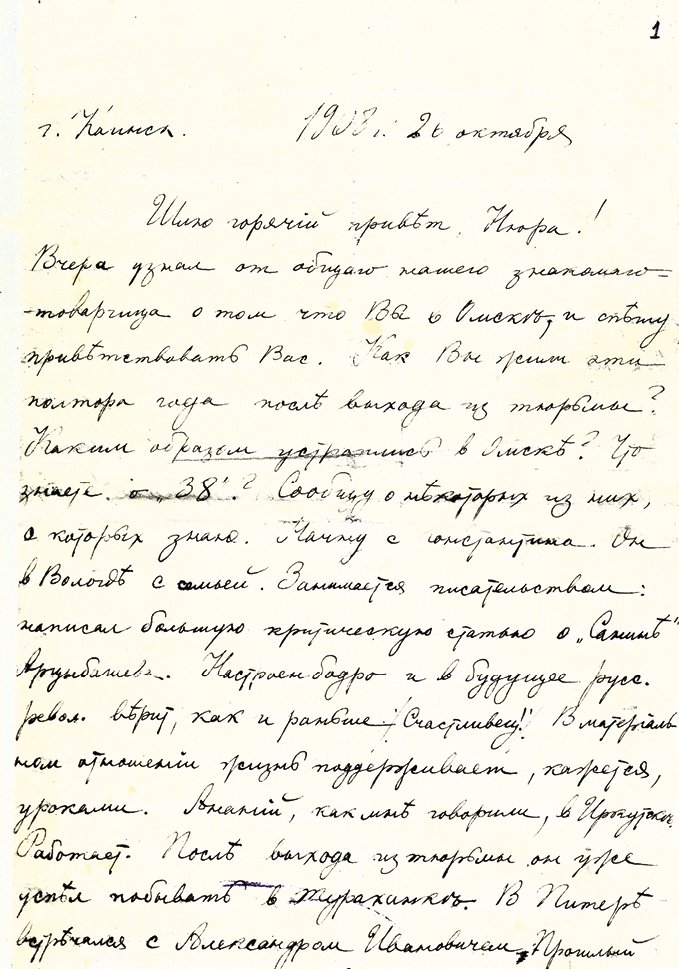 1
г. Каинск. 1908 г. 26 октября
Шлю горячій привѣт, Нюра!
Вчера узнал от общаго нашего знакомаго=
-товарища о том что Вы в Омскѣ, и спѣшу
привѣтствовать Вас. Как Вы жили эти
полтора года послѣ выхода из тюрьмы?
Каким образом устроились в Омскѣ? Что
знаете о „38"? Сообщу о нѣкоторых из них,
о которых знаю. Начну с Константина. Он
в Вологдѣ с семьей. Занимается писательством:
написал большую критическую статью о „Санинѣ"
Арцыбашева. Настроен бодро и в будущее русс.
револ. вѣрит, как и раньше (Счастливец!) В матерiаль
ном отношенiи жизнь поддерживает, кажется,
уроками. Ананiй, как мнѣ говорили, в Иркутскѣ.
Работает. Послѣ выхода из тюрьмы он уже
успѣл побывать в . В Питерѣ
встрѣчался с Александром Ивановичем. Прошлый